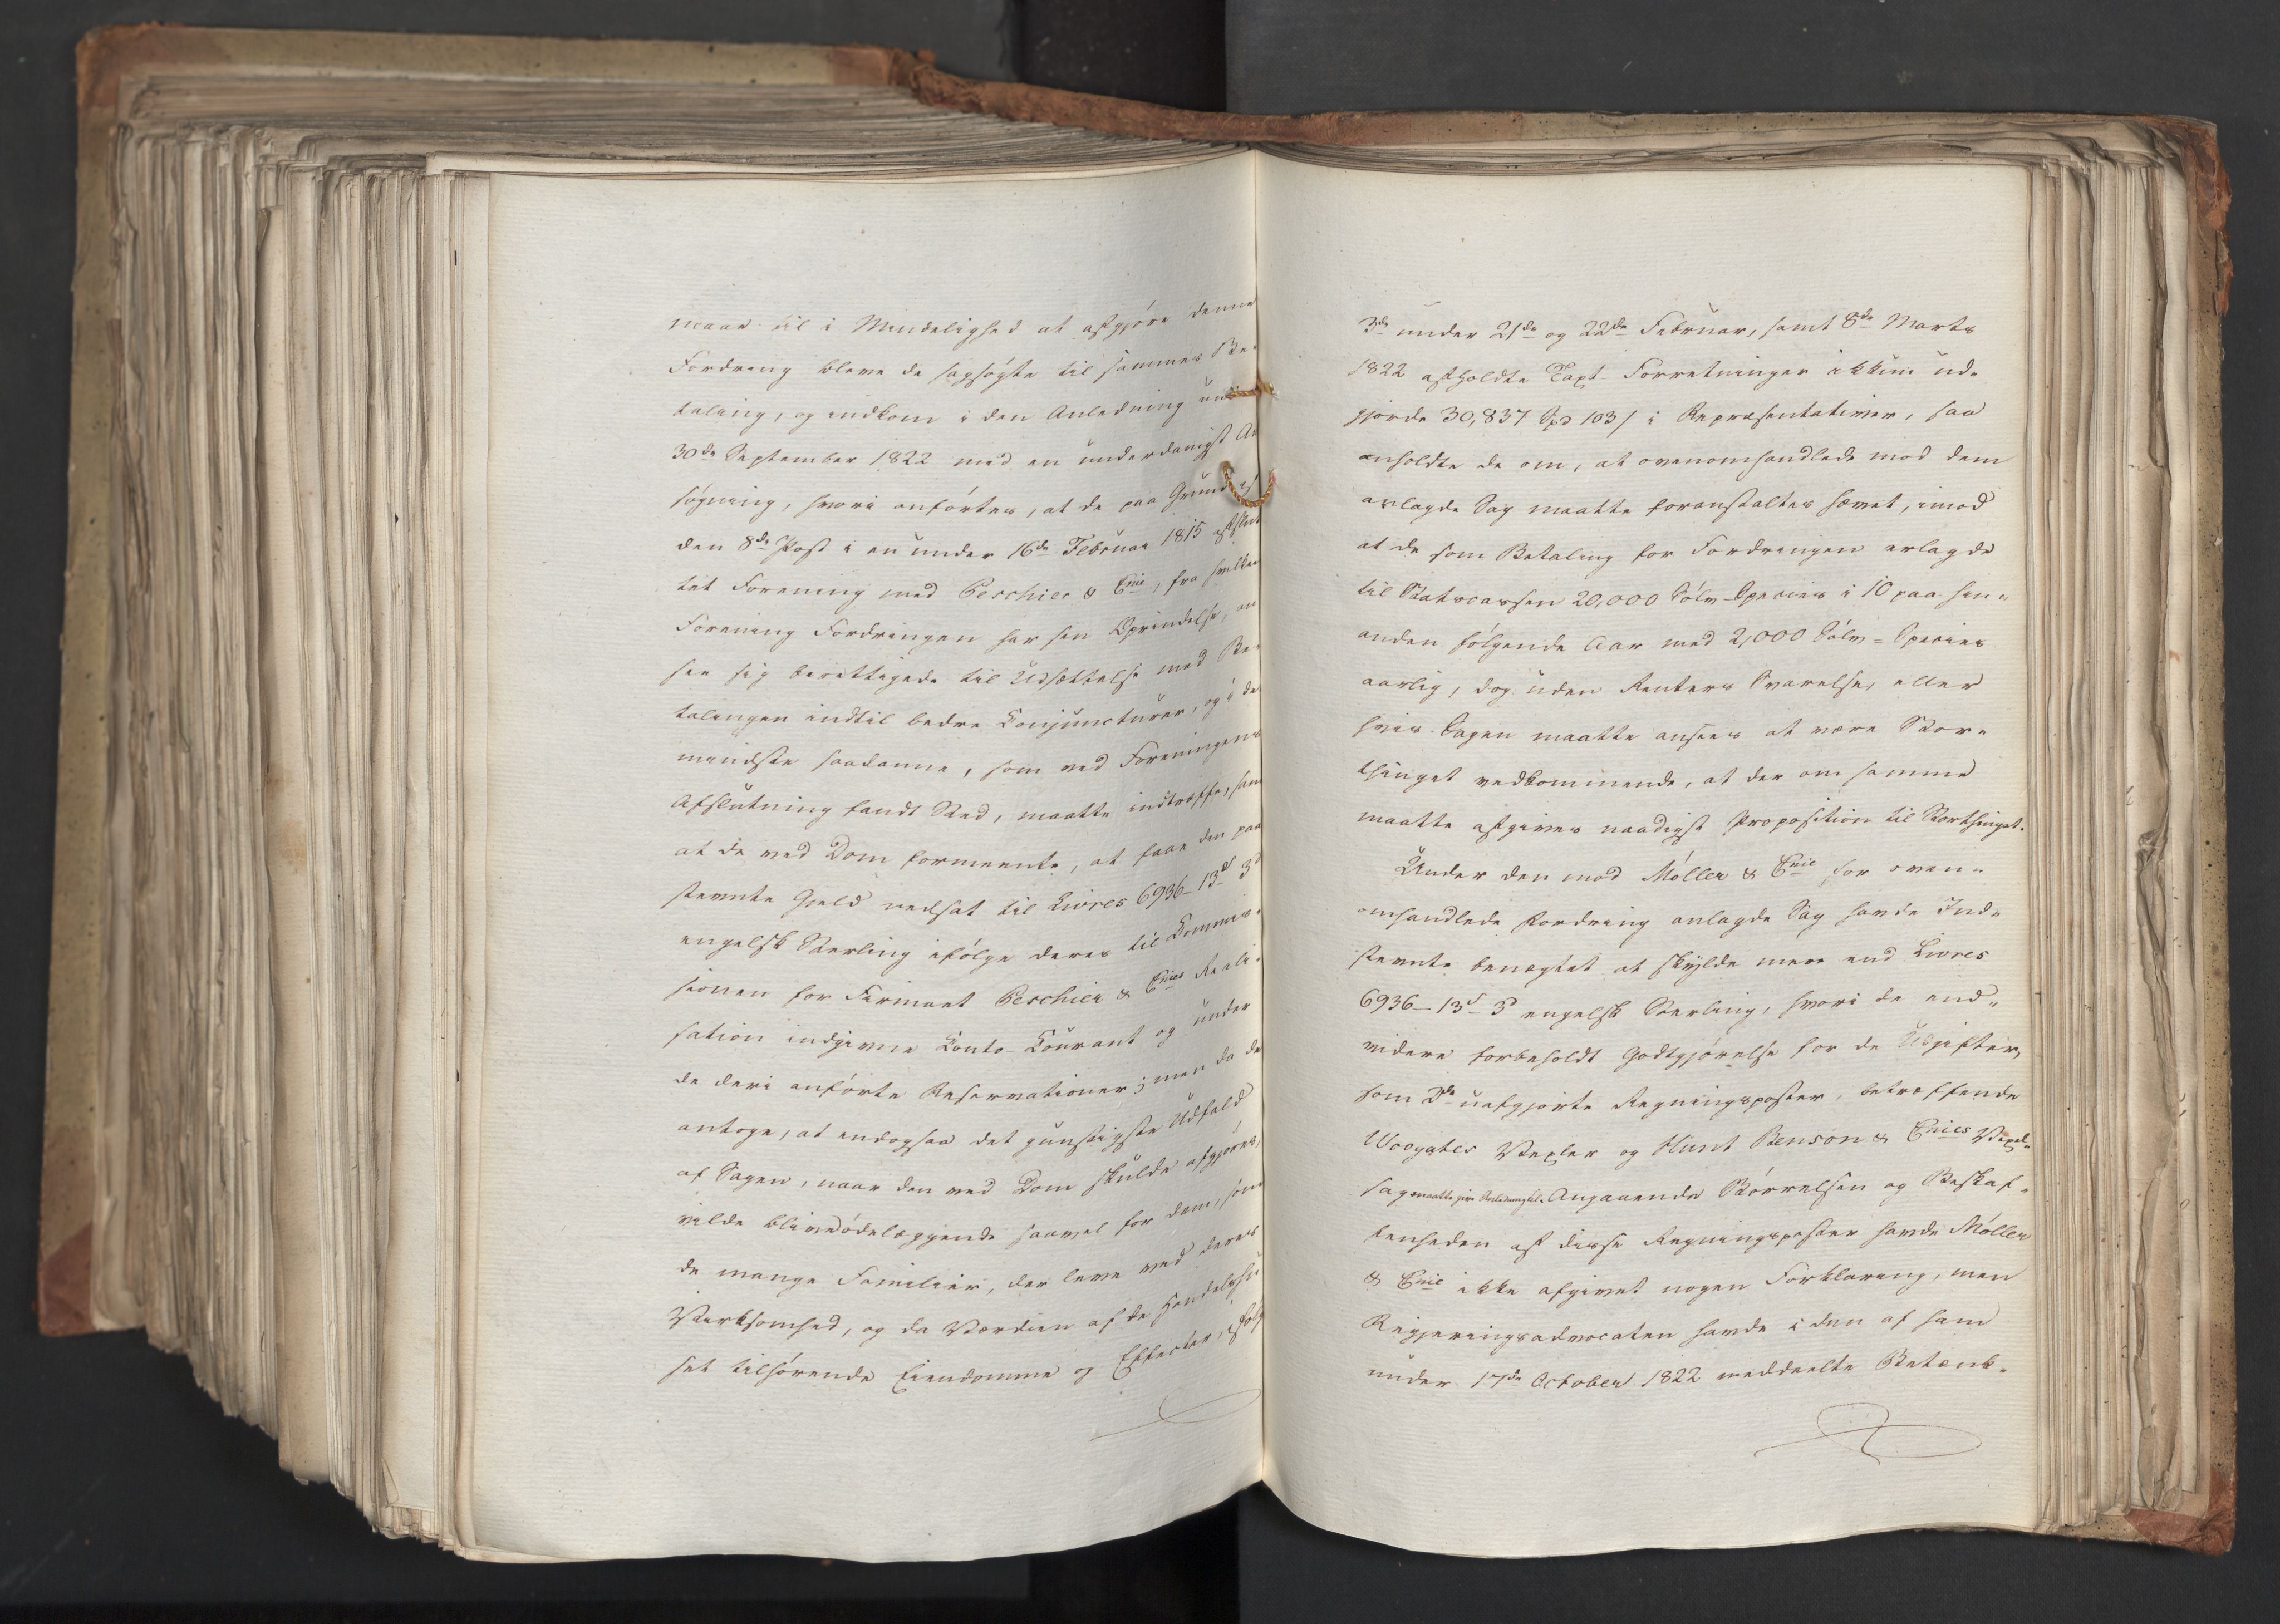 maae til i Mindelighed at afgjøre denne
Fordring bleve de sagsøgte til sammes Be-
taling, og indkom i den Anledning under
30de September 1822 med en underdanigst An
søgning, hvori anførtes, at de paa Grund af
den 8de Post i en under 16de Februar 1815 afslut
tet Forening med Peschier & Cnie, fra hvilken
Forening Fordringen har sin Oprindelse, an
see sig berettigede til Udsættelse med Be-
talingen indtil bedre Conjuncturer, og i det
mindste saadanne, som ved Foreningens
Afslutning fandt Sted, maatte indtræffe, samt
at de ved Dom formeente, at faae den paa
stevnte Gjeld nedsat til Livres 6936-13s 3d
engelsk Sterling ifølge deres til Commis-
sionen for Firmaet Peschier & Cnies Reali-
sation indgivne Conto-Courant og under
de deri anførte Reservationer; men da de
antoge, at endogsaa det gunstigste Udfald
af Sagen, naar den ved Dom skulde afgjøres,
vilde blive ødelæggende saavel for dem, som
de mange Familier, der leve ved deres
Virksomhed, og da Værdien af de Handelshu
set tilhørende Eiendomme og Effecter, ifølge
3de under 21de og 22de Februar, samt 8de Marts
1822 afholdte Taxt-Forretninger ikkun ud-
gjorde 30,837 Spd 103 s i Repræsentativer, saa
anholdte de om, at ovenomhandlede mod dem
anlagde Sag maatte foranstaltes hævet, imod
at de som Betaling for Fordringen erlagde
til Statscassen 20,000 Sølv-Species i 10 paa hin-
anden følgende Aar med 2,000 Sølv-Species
aarlig, dog uden Renters Svarelse, eller
hvis Sagen maatte ansees at være Stor-
thinget vedkommende, at der om samme
maatte afgives naadigst Proposition til Storthinget.
Under den mod Møller & Cnie for oven-
omhandlede Fordring anlagde Sag havde Ind-
stevnte benægtet at skylde mere end Livres
6936-13s-3d engelsk Sterling, hvori de end-
videre forbeholdt Godtgjørelse for de Udgifter,
som 2de uafgjorte Regningsposter, betræffende
Woogates Vexler og Hunt Benson & Cnies Vexel-
sag maatte give Anledning til. Angaaende Størrelsen og Beskaf-
fenheden af disse Regningsposter havde Møller
& Cnie ikke afgivet nogen Forklaring, men
Regjeringsadvocaten havde i den af ham
under 17de October 1822 meddeelte Betænk-